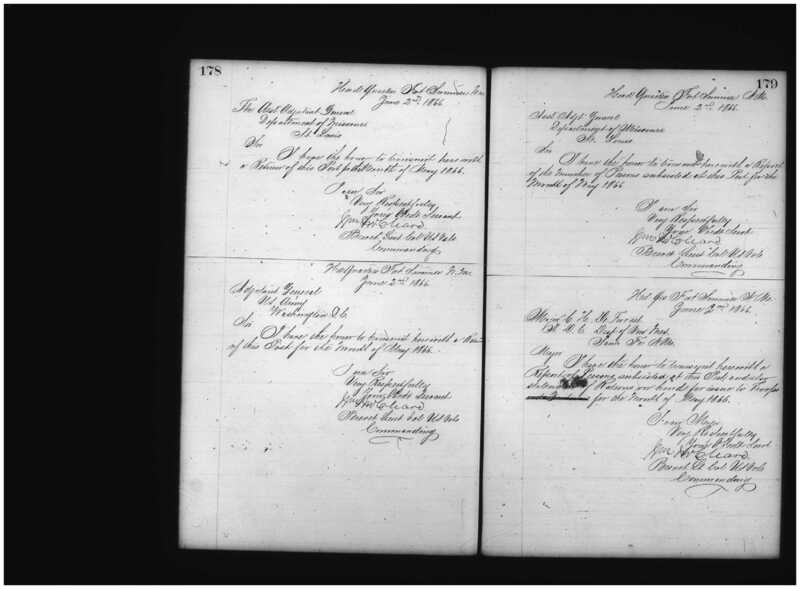 178
Head Quarters Fort Sumner N.M.
June 2nd 1866
The Asst Adjutant General
Department of Missouri
St Louis
Sir
I have the honor to transmit herewith
a Return of this Post for the Month of May 1866.
I am Sir
Very Respectfully
Your Obedt Servant
Wm McCleave
Brevet Lieut Col US Vols
Commanding
Hd Quarters Fort Sumner N.M.
June 2nd 1866
Adjutant General
U.S. Army
Washington D.C.
Sir
I have the honor to transmit herewith a
of this Post for the Month of May 1866.
I am Sir
Very Respectfully
Your Obedt Servant
Wm McCleave
Brevet Lieut Col US Vols
Commanding
179
Head Quarters Fort Sumner N.M.
June 2nd 1866
Asst Adjt General
Department of Missouri
St. Louis
Sir
I have the honor to transmit herewith a Report
of the Number of Persons subsisted at this Post for the
Month of May 1866
I am Sir
Very Respectfully
Your Obedt Servt
Wm McCleave
Brevet Lieut Col US Vols
Commanding
Hd Qrs Fort Sumner N.M.
June 2nd 1866
Major C. H.
Dept of New Mex.
Santa Fe N.M.
Major
I have the honor to transmit herewith a
Report of Persons subsisted at this Post and also
statement of Rations on hand for issue to Troops
for the Month of May 1866.
I am Major
Very Respectfully
Your Obedt Servt
Wm McCleave
Brevet Lt Col US Vols
Commanding